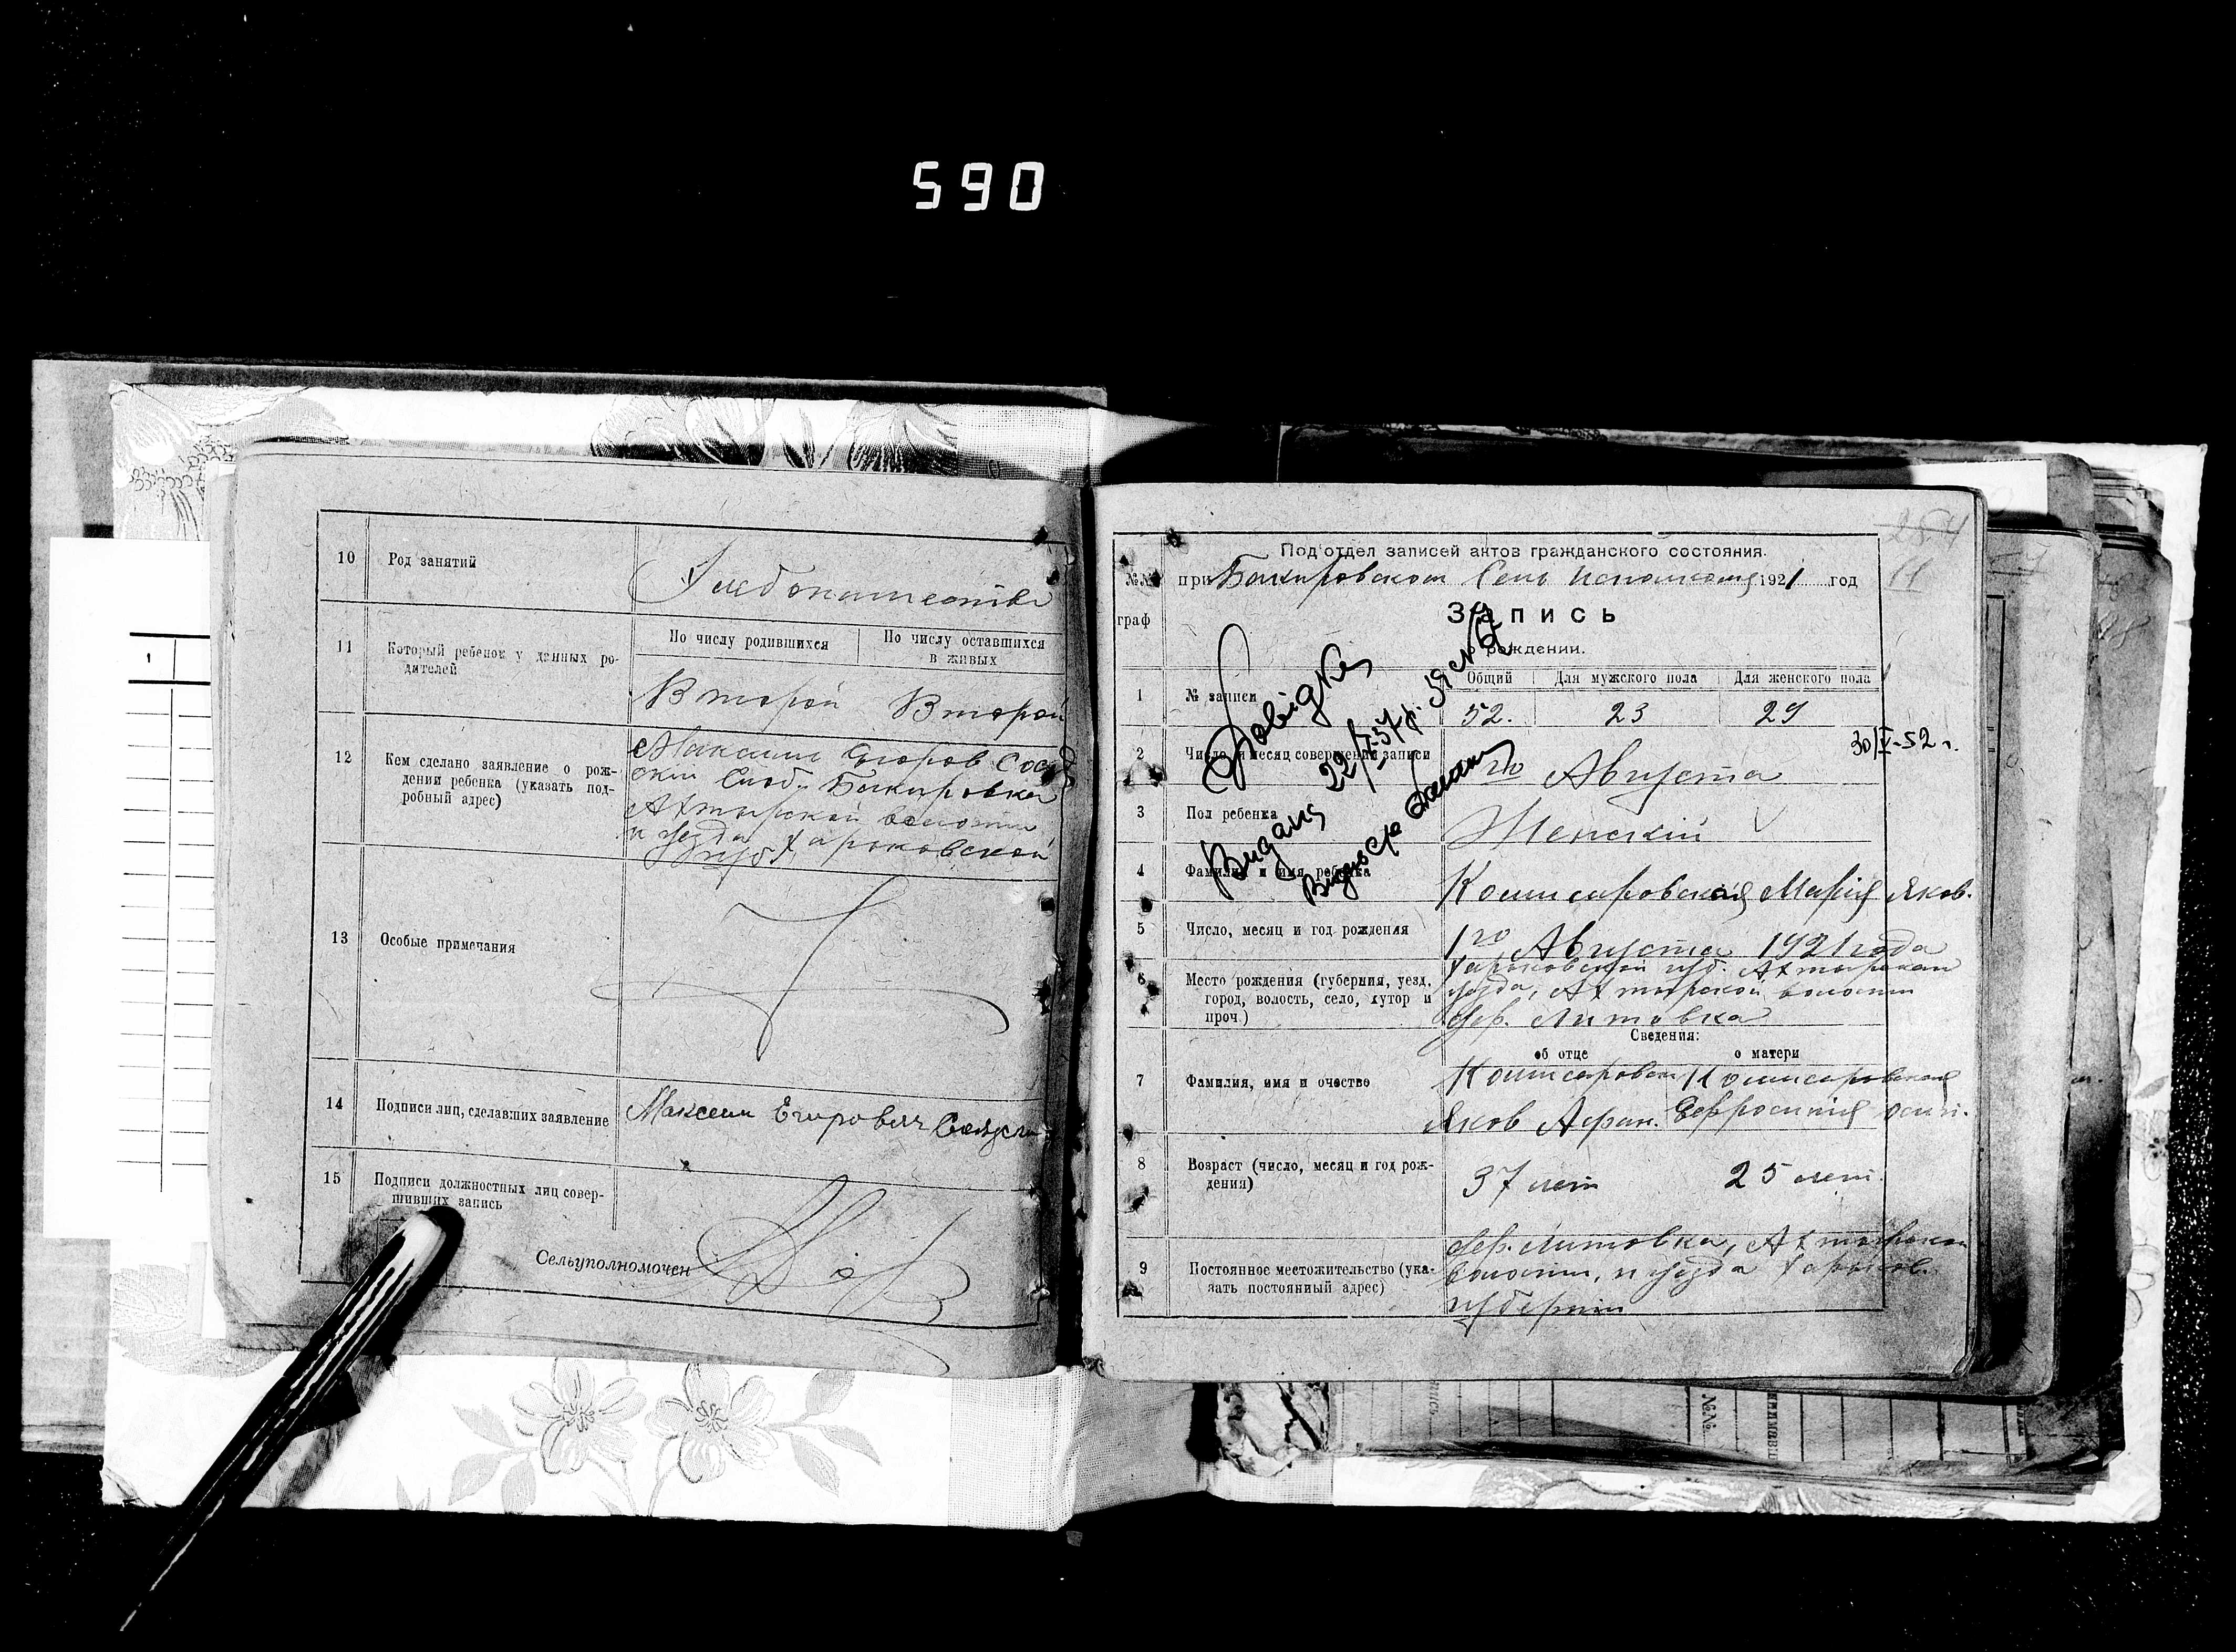 590
10 Род занятий
Хлебопашество
11 Который ребенок у данных ро-
дителей
По числу родившихся
По числу оставшихся
в живых
Второй Второй
12 Кем сделано заявление о рож-
дении ребенка (указать под-
робный адрес)
Максим Егоров
Слоб. Бакировка
Ахтырской волости
и уезда Харьковской
губ.
13 Особые примечания
14 Подписи лиц, сделавших заявление
Максим Егорович
15 Подписи должностных лиц совер-
шивших запись
Сельуполномочен
284
11
Под'отдел записей актов гражданского состояния.
при Бакировском Сель Исполкоме 1921 год
№№
граф
Запись
о рождении.
Общий Для мужского пола Для женского пола
1 № записи 52. 23 29
30/V-52 г.
2 Число и месяц совершения записи
Августа
3 Пол ребенка Женский
4 Фамилия и имя ребенка Комисаровская Мария Яков.
5 Число, месяц и год рождения 1го Августа 1921 года
6 Место рождения (губерния, уезд,
город, волость, село, хутор и
проч.)
Харьковской губ. Ахтырскаго
уезда, Ахтырской волости
дер. Литовка
Сведения:
об отце о матери
7 Фамилия, имя и очество
Комисаровск Комисаровская
Яков Афан. Евфросиния Осип.
8 Возраст (число, месяц и год рож-
дения)
37 лет 25 лет.
9 Постоянное местожительство (ука-
зать постоянный адрес)
дер. Литовка, Ахтырской
волости, и уезда Харьков.
губернии
Довідка
Видана 22/